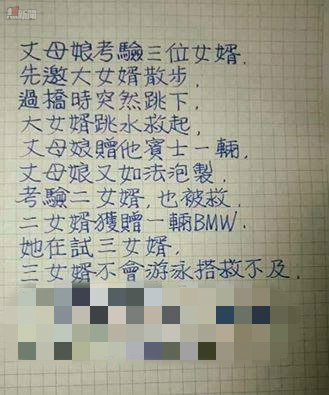 熱新聞
丈母娘考驗三位女婿.
先邀大女婿散步,
過橋時突然跳下,
大女婿跳水救起,
丈母娘贈他賓士一輛,
丈母娘又如法泡製,
考驗二女婿,也被救,
二女婿獲贈一輛BMW.
她在試三女婿,
三女婿不會游永搭救不及,